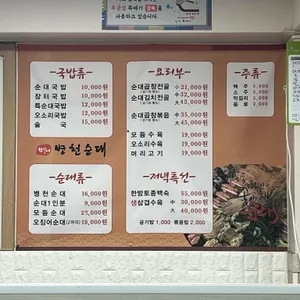 무궁한 뚝배기
사용하고 있습니다.
-국밥류-
순대국밥 10,000원
장터국밥 10,000원
특순대국밥 12,000원
오소리국밥 12,000원
술국 15,000원
병천순대
-순대류-
병천순대 16,000원
순대1인분 9,000원
모듬순대 23,000원
오징어순대(2마리) 18,000원
-요리부-
순대곱창전골 小 21,000원
순대김치전골 中 32,000원
大 43,000원
순대곱창볶음 小 35,000원
大 45,000원
모듬수육 19,000원
오소리수육 19,000원
머리고기 19,000원
-저녁특선-
한방토종백숙 55,000원
생삼겹수육 中 30,000원
大 40,000원
공기밥 1,000 볶음밥 2,000
-주류-
맥주
소주
막걸리
음료